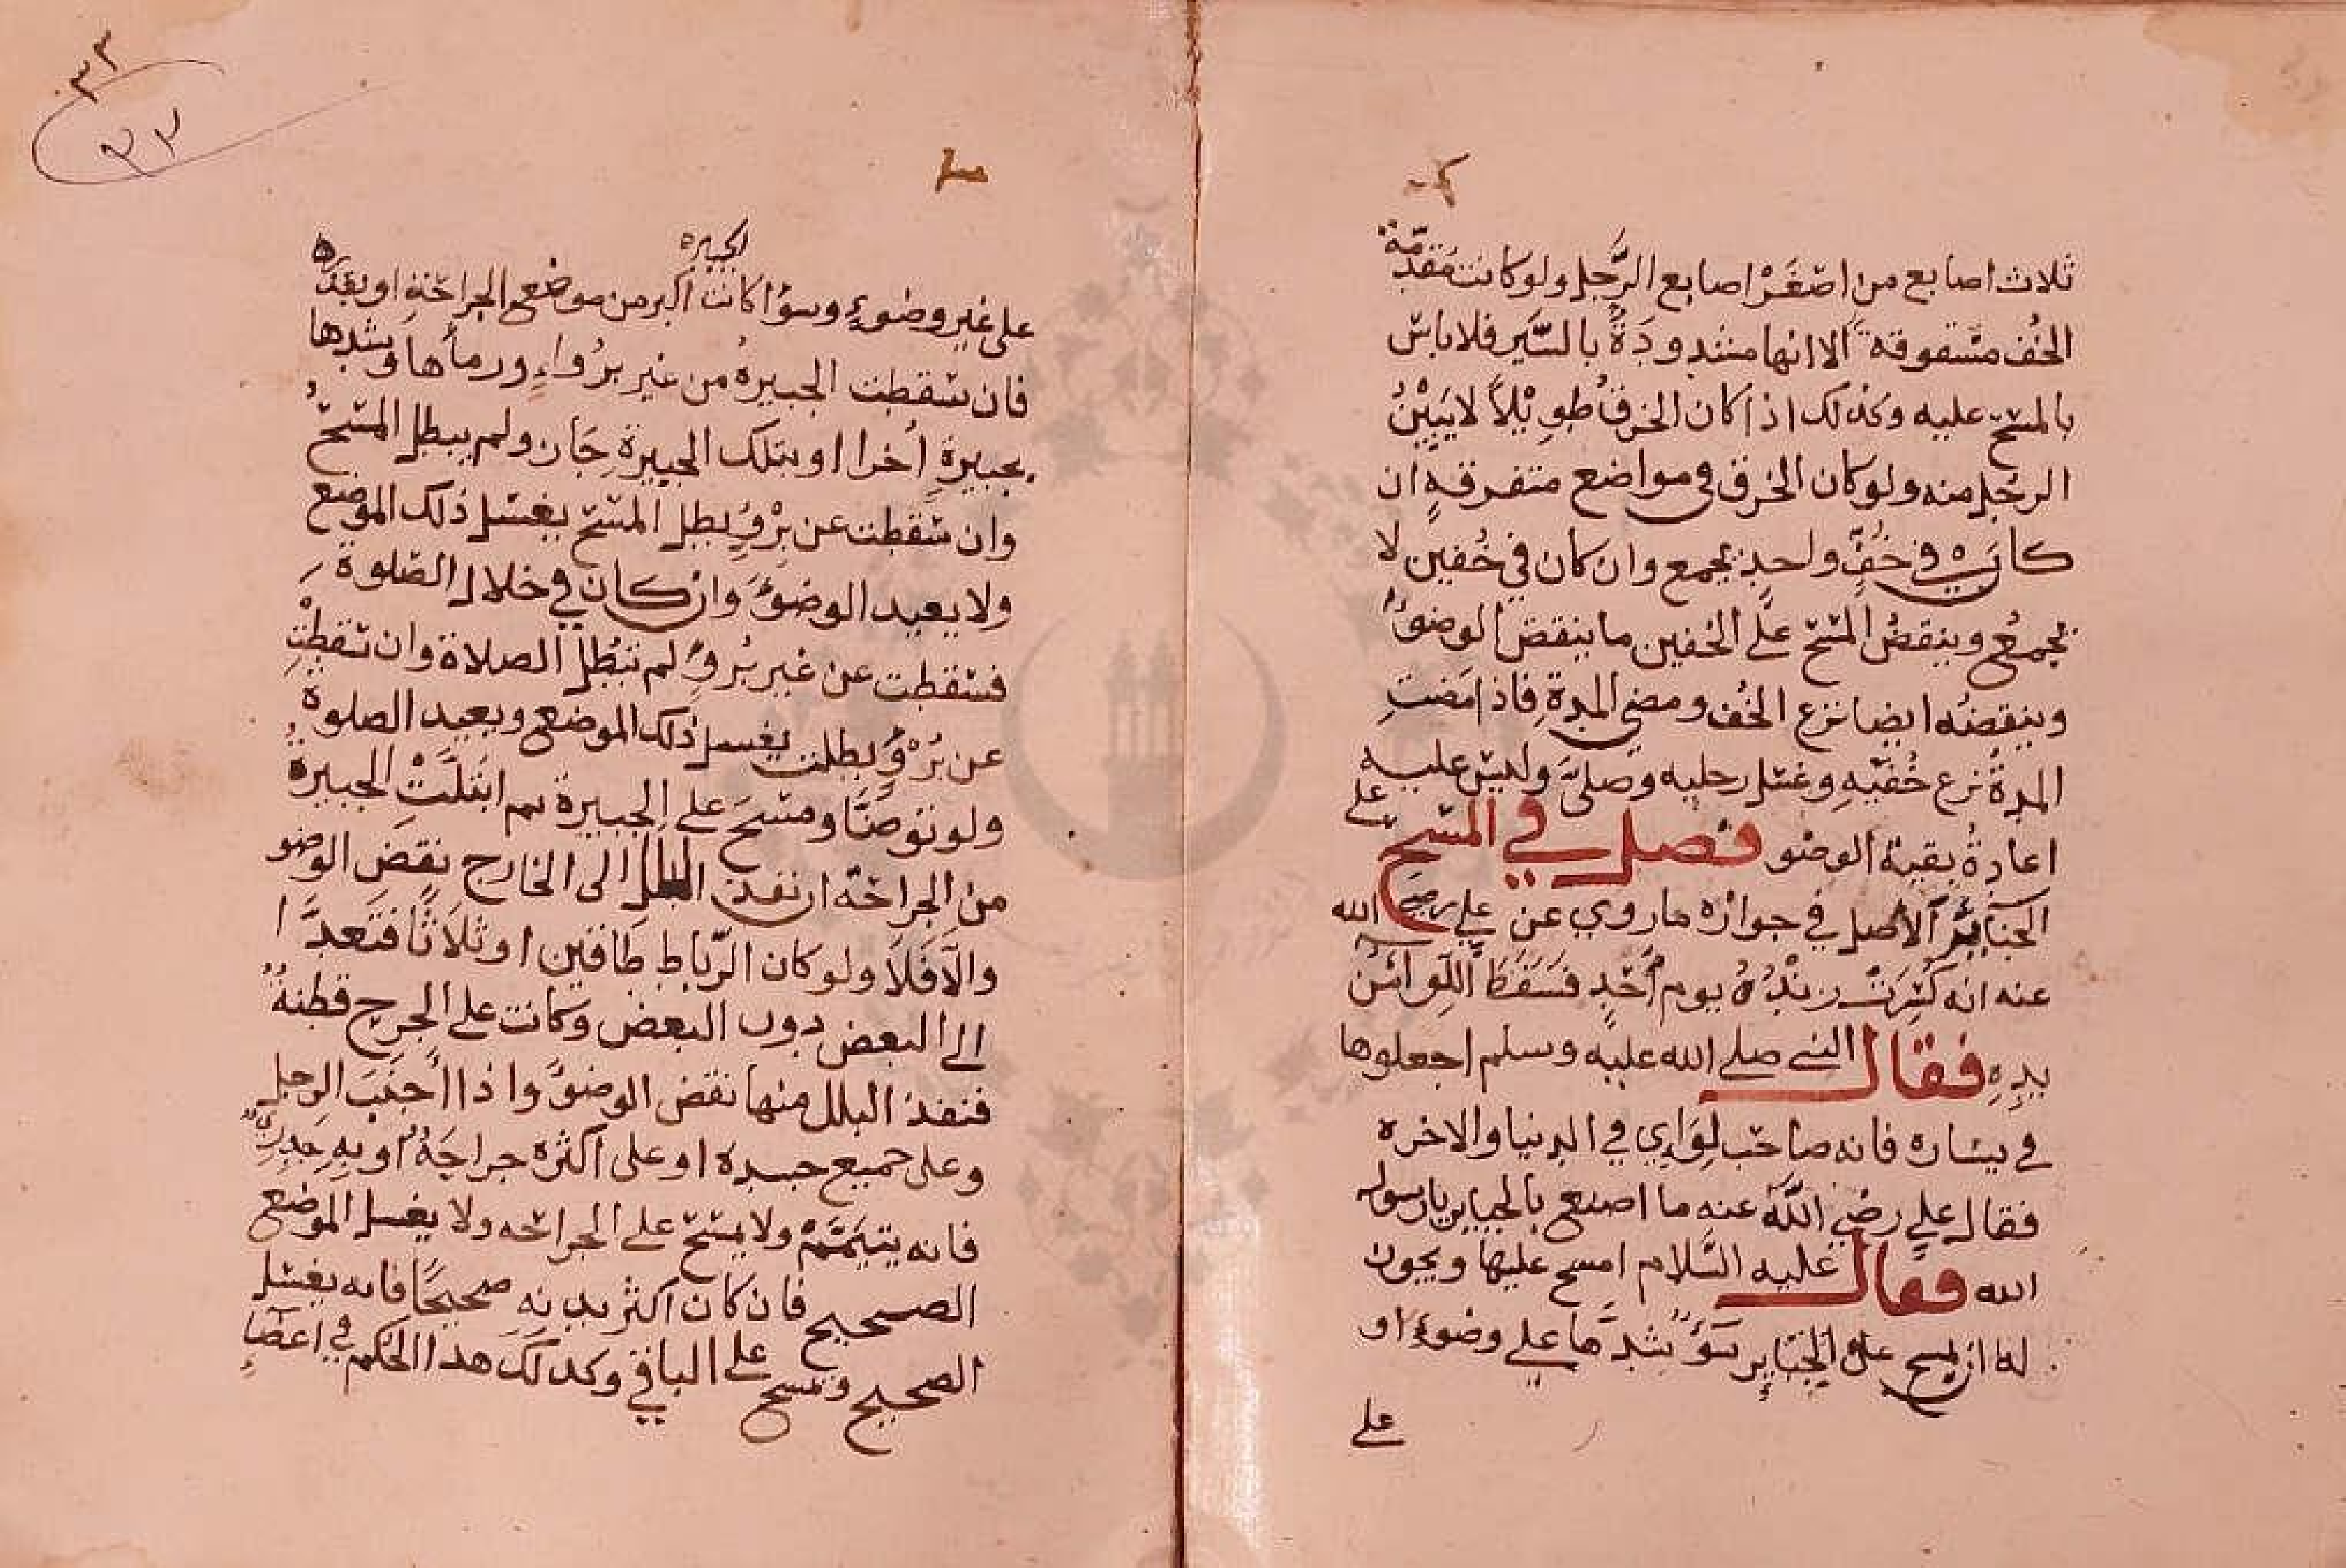 ثلاث اصابع من اصغر اصابع الرجل ولو كانت مقدمة
الخف مشقوقة الا انها مشدودة بالسير فلا باس
بالمسح عليه وكذلك اذا كان الخرق طويلاً لا يبين
الرجل منه ولو كان الخرق في مواضع متفرقة ان
كانت في خف واحد يجمع وان كان في خفين لا
يجمع وينقض المسح على الخفين ما ينقض الوضو
وينقضه ايضا نزع الخف ومضي المدة فاذا مضت
المدة نزع خفيه وغسل رجليه وصلى وليس عليه
اعادة بقية الوضو فصل في المسح على
الجبائر الاصل في جوازه ما روي عن علي رضي الله
عنه انه كسرت زنده يوم احد فسقط اللوا من
يده فقال النبي صلى الله عليه وسلم اجعلوها
في يساره فانه صاحب لوائي في الدنيا والاخره
فقال علي رضي الله عنه ما اصنع بالجباير يا رسول
الله فقال عليه السلام امسح عليها ويجوز
له ان يمسح على الجبائر سوٌ شدها على وضوءٍ او
على
٣٢
٣٣
على غير وضوءٍ وسوٌا كانت الجبيره اكبر من موضع الجراحة او بقدره
فان سقطت الجبيرة من غير برُواءٍ ورماها وشدها
بجبيرةٍ اخرا او بتلك الجبيرة جاز ولم يبطل المسح
وان سقطت عن برْوٍ بطل المسح يغسل ذلك الموضع
ولا يعيد الوضوَ وان كان في خلال الصلوة
فسقطت عن غير برُوٍ لم تبطل الصلاة وان سقطت
عن برْوٍ بطلت يغسل ذلك الموضع ويعيد الصلوة
ولو توضا ومسح على الجبيرة ثم ابتلت الجبيرة
من الجراحة ان نفذ البلل الى الخارج نقض الوضو
والا فلا ولو كان الرباط طاقين او ثلاثا فتعدا
الى البعض دون البعض وكانت على الجرح قطنة
فنفذ البلل منها نقض الوضوَ واذا اجنب الرجل
وعلى جميع جسده او على اكثره جراحةٌ او به جدري
فانه يتيمم ولا يمسح على الجراحه ولا يغسل الموضع
الصحيح فان كان اكثر بدنه صحيحا فانه يغسل
الصحيح ويمسح على الباقي وكذلك هذا الحكم في اعضاءِ